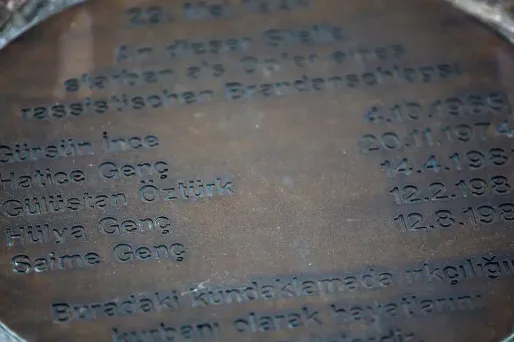 29. Mai
An dieser Stelle
starben als Opfer eines
rassistischen Brandanschlags:
Gürsün İnce 4.10.1965
Hatice Genç 20.11.1974
Gülüstan Öztürk 14.4.198
Hülya Genç 12.2.198
Saime Genç 12.8.198
Buradaki kundaklamada ırkçılığın
kurbanı olarak hayatlarını